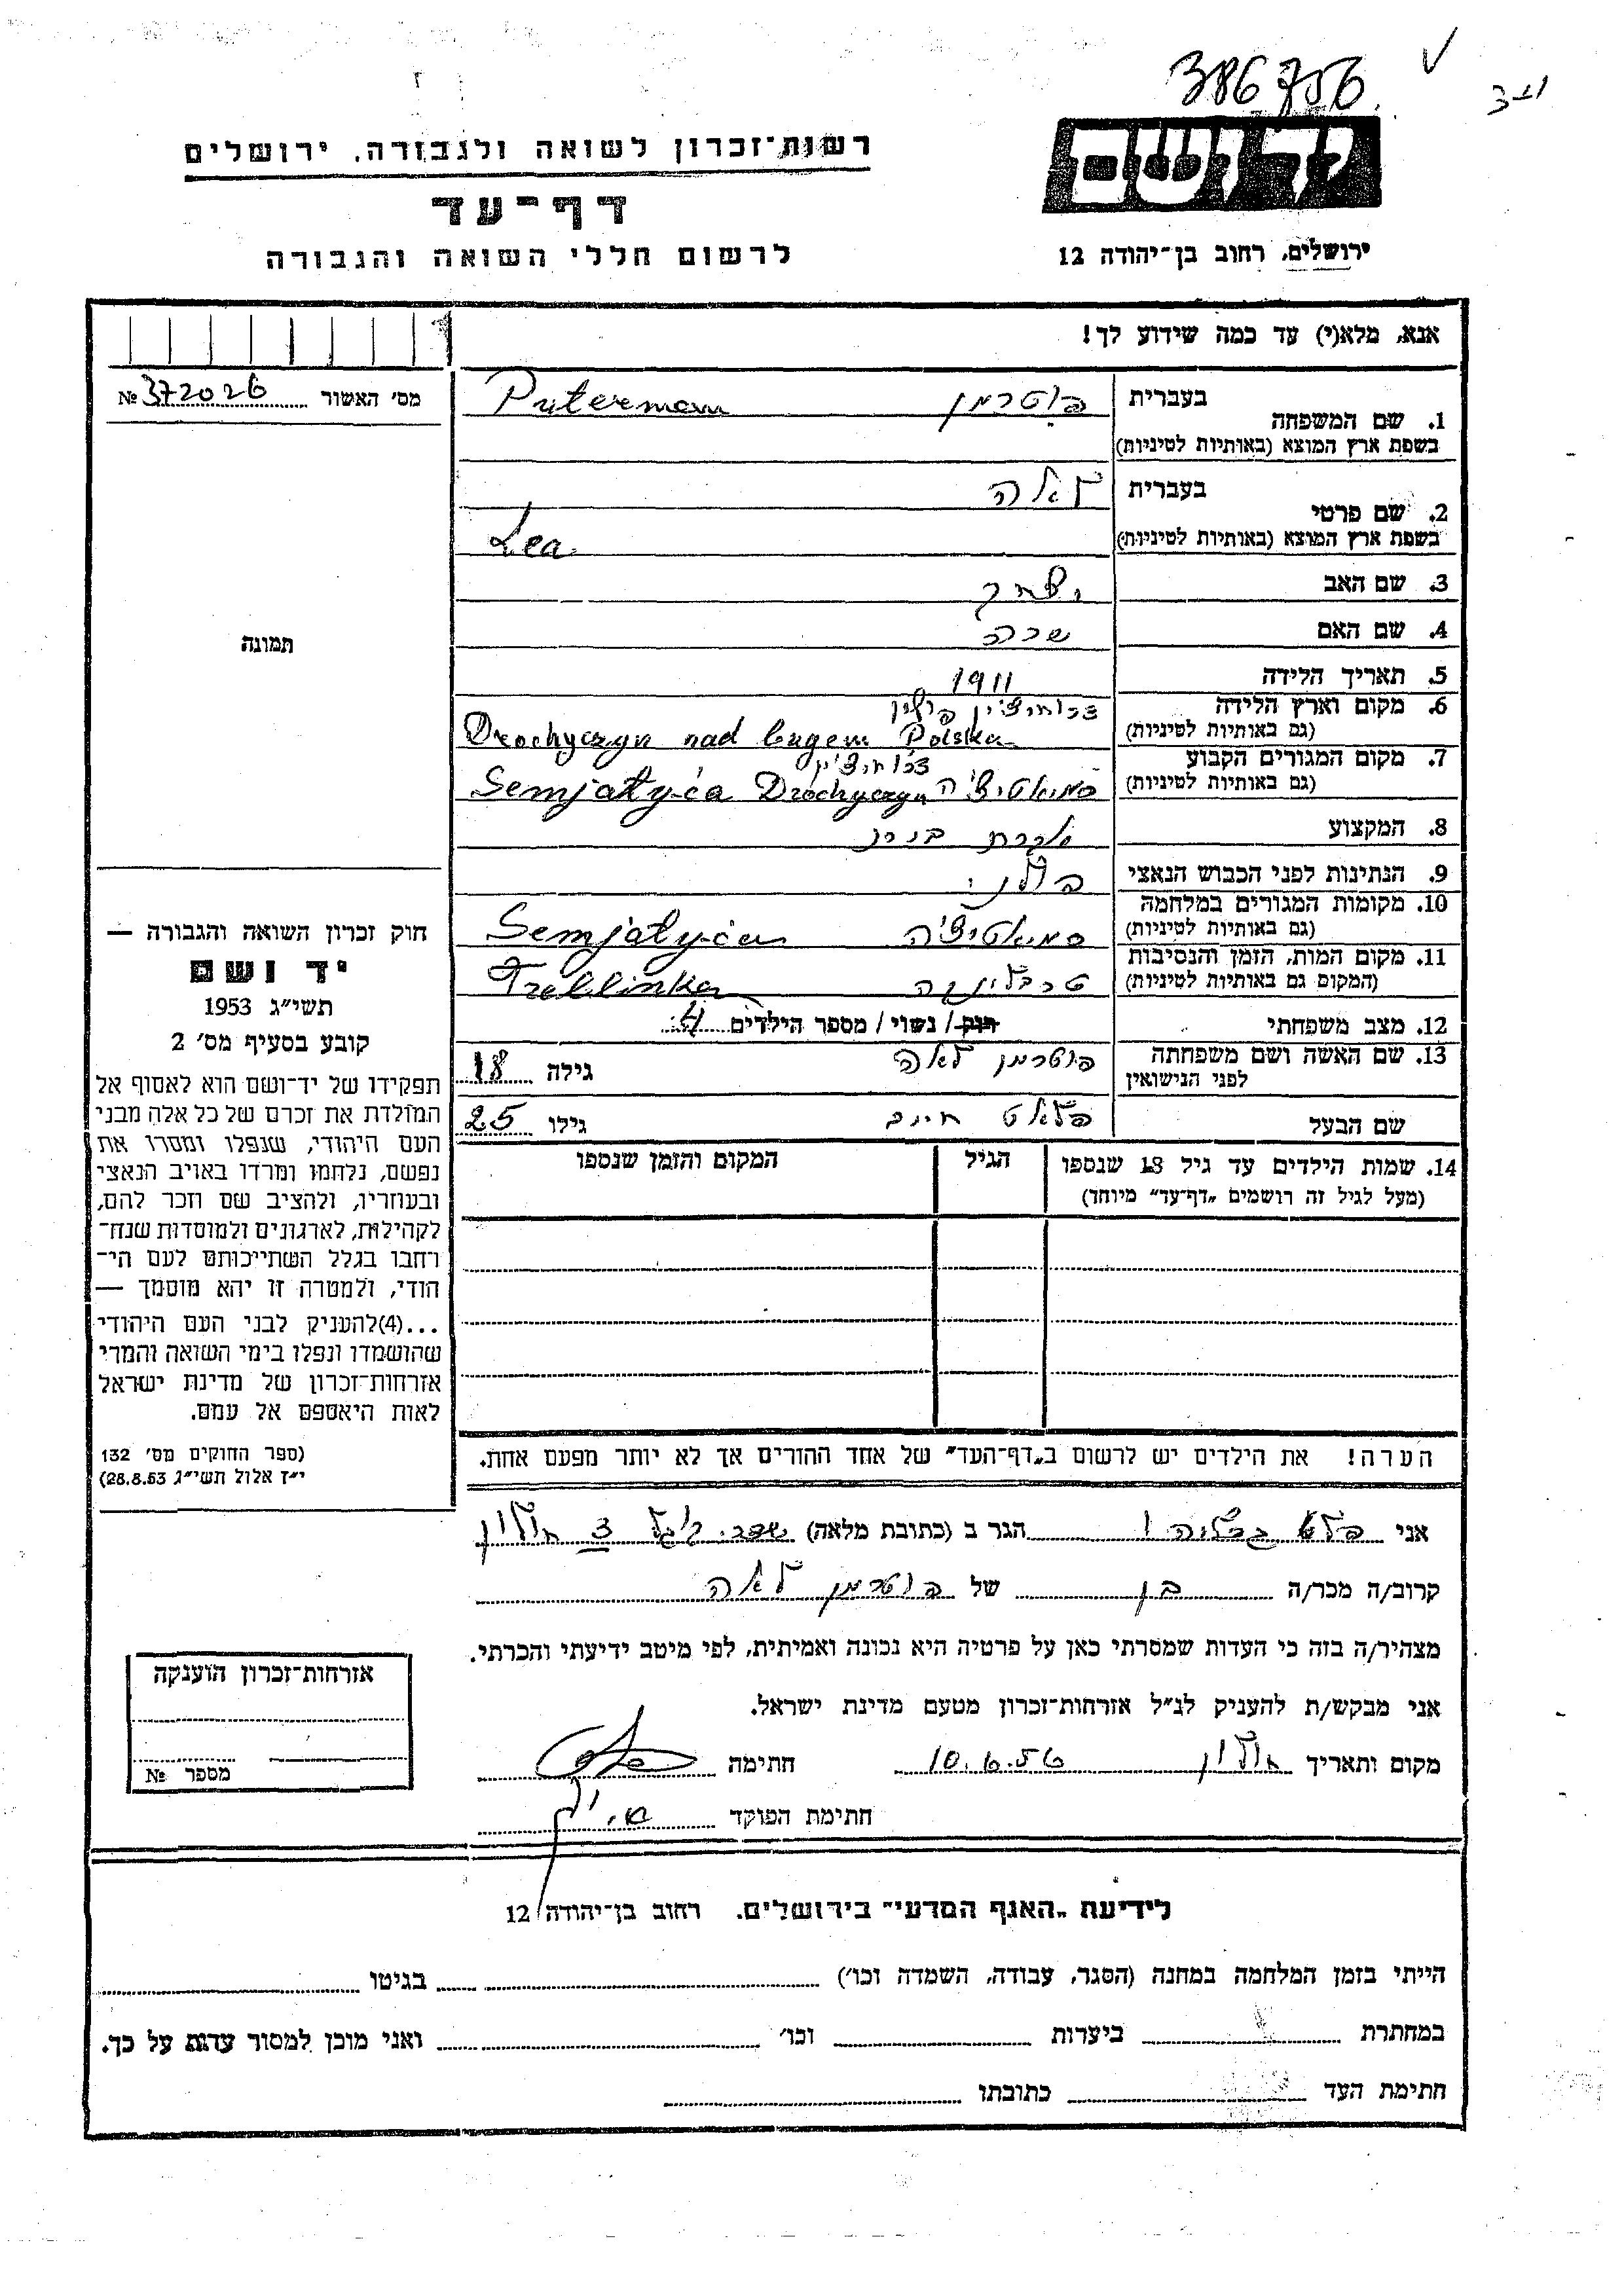 386756
רשות־זכרון לשואה ולגבורה, ירושלים
יד ושם
דף־עד
לרשום חללי השואה והגבורה
ירושלים, רחוב בן־יהודה 12
אנא, מלא(י) עד כמה שידוע לך!
מס׳ האשור № 372026
תמונה
חוק זכרון השואה והגבורה —
יד ושם
תשי״ג 1953
קובע בסעיף מס׳ 2
תפקידו של יד־ושם הוא לאסוף אל
המולדת את זכרם של כל אלה מבני
העם היהודי, שנפלו ומסרו את
נפשם, נלחמו ומרדו באויב הנאצי
ובעוזריו, ולהציב שם וזכר להם,
לקהילות, לארגונים ולמוסדות שנח־
רחבו בגלל השתייכותם לעם הי־
הודי, ולמטרה זו יהא מוסמך —
...(4)להעניק לבני העם היהודי
שהושמדו ונפלו בימי השואה והמרי
אזרחות־זכרון של מדינת ישראל
לאות היאספם אל עמם.
(ספר החוקים מס׳ 132
י״ז אלול תשי״ג 28.8.53)
1. שם המשפחה
בעברית פוטרמן Puterman
בשפת ארץ המוצא (באותיות לטיניות)
2. שם פרטי
בעברית לאה
בשפת ארץ המוצא (באותיות לטיניות) Lea
3. שם האב יצחק
4. שם האם שרה
5. תאריך הלידה 1911
6. מקום וארץ הלידה דרוהיצ׳ין פולין
(גם באותיות לטיניות) Drochyczyn nad bugem Polska
7. מקום המגורים הקבוע
(גם באותיות לטיניות) סמיאטיצ׳ה Semjatyća Drochyczyn
8. המקצוע עקרת בית
9. הנתינות לפני הכבוש הנאצי פולני
10. מקומות המגורים במלחמה
(גם באותיות לטיניות) סמיאטיצ׳ה Semjatyća
11. מקום המות, הזמן והנסיבות
(המקום גם באותיות לטיניות) טרבלינקה Treblinka
12. מצב משפחתי רווק / נשוי / מספר הילדים 4
13. שם האשה ושם משפחתה
לפני הנישואין פוטרמן לאה גילה 18
שם הבעל גילו 25
14. שמות הילדים עד גיל 18 שנספו
(מעל לגיל זה רושמים „דף־עד״ מיוחד)
הגיל
המקום והזמן שנספו
הערה! את הילדים יש לרשום ב„דף־העד״ של אחד ההורים אך לא יותר מפעם אחת.
אני הגר ב (כתובת מלאה) 3 חולון
קרוב/ה מכר/ה בן של פוטרמן לאה
מצהיר/ה בזה כי העדות שמסרתי כאן על פרטיה היא נכונה ואמיתית, לפי מיטב ידיעתי והכרתי.
אני מבקש/ת להעניק לנ״ל אזרחות־זכרון מטעם מדינת ישראל.
מקום ותאריך חולון 10.6.56 חתימה
חתימת הפוקד
אזרחות־זכרון הוענקה
מספר №
לידיעת „האגף המדעי״ בירושלים. רחוב בן־יהודה 12
הייתי בזמן המלחמה במחנה (הסגר, עבודה, השמדה וכו׳) בגיטו
במחתרת ביערות וכו׳ ואני מוכן למסור עדות על כך.
חתימת העד כתובתו